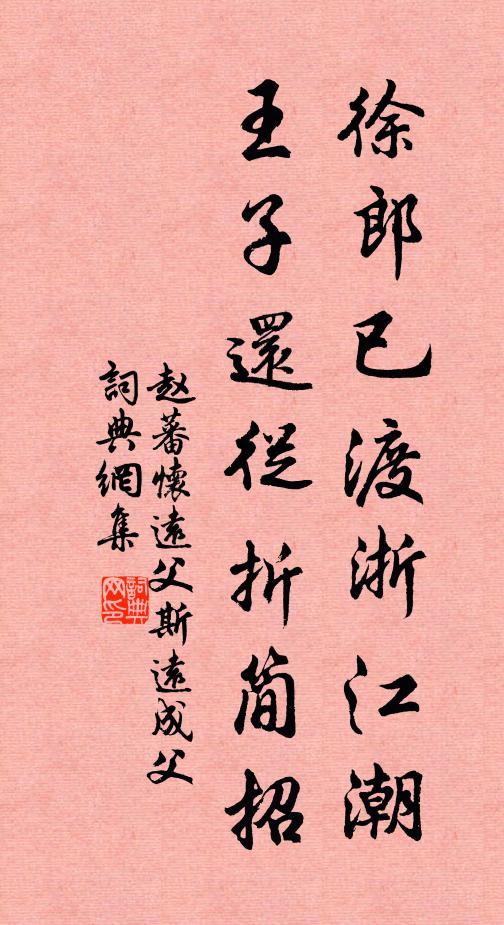 徐郎已渡浙江潮
王子還從折簡招
赵蕃懷遠父斯遠成父
詞典網集
詞典网印